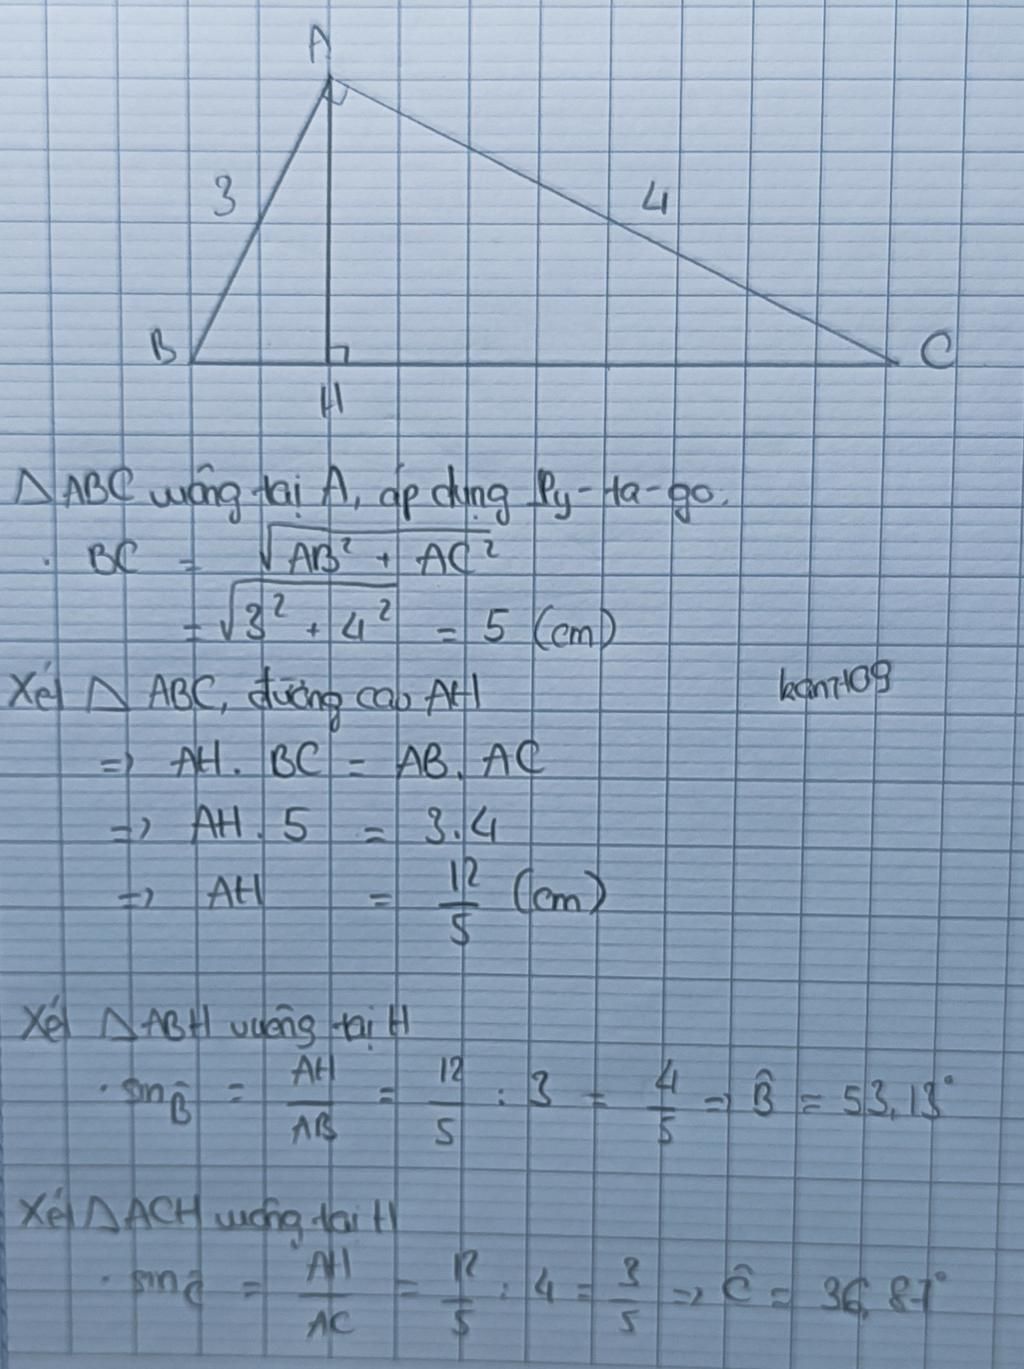 A
3
4
B
C
H
△ABC vuông tại A, áp dụng Py-ta-go.
. BC = √(AB² + AC²)
= √(3² + 4²) = 5 (cm)
Xét △ ABC, đường cao AH
kan7109
=> AH. BC = AB. AC
=> AH. 5 = 3.4
=> AH = 12/5 (cm)
Xét △ABH vuông tại H
· sin B̂ = AH/AB = 12/5 : 3 = 4/5 => B̂ = 53,13°
Xét △ACH vuông tại H
· sin Ĉ = AH/AC = 12/5 : 4 = 3/5 => Ĉ = 36,87°